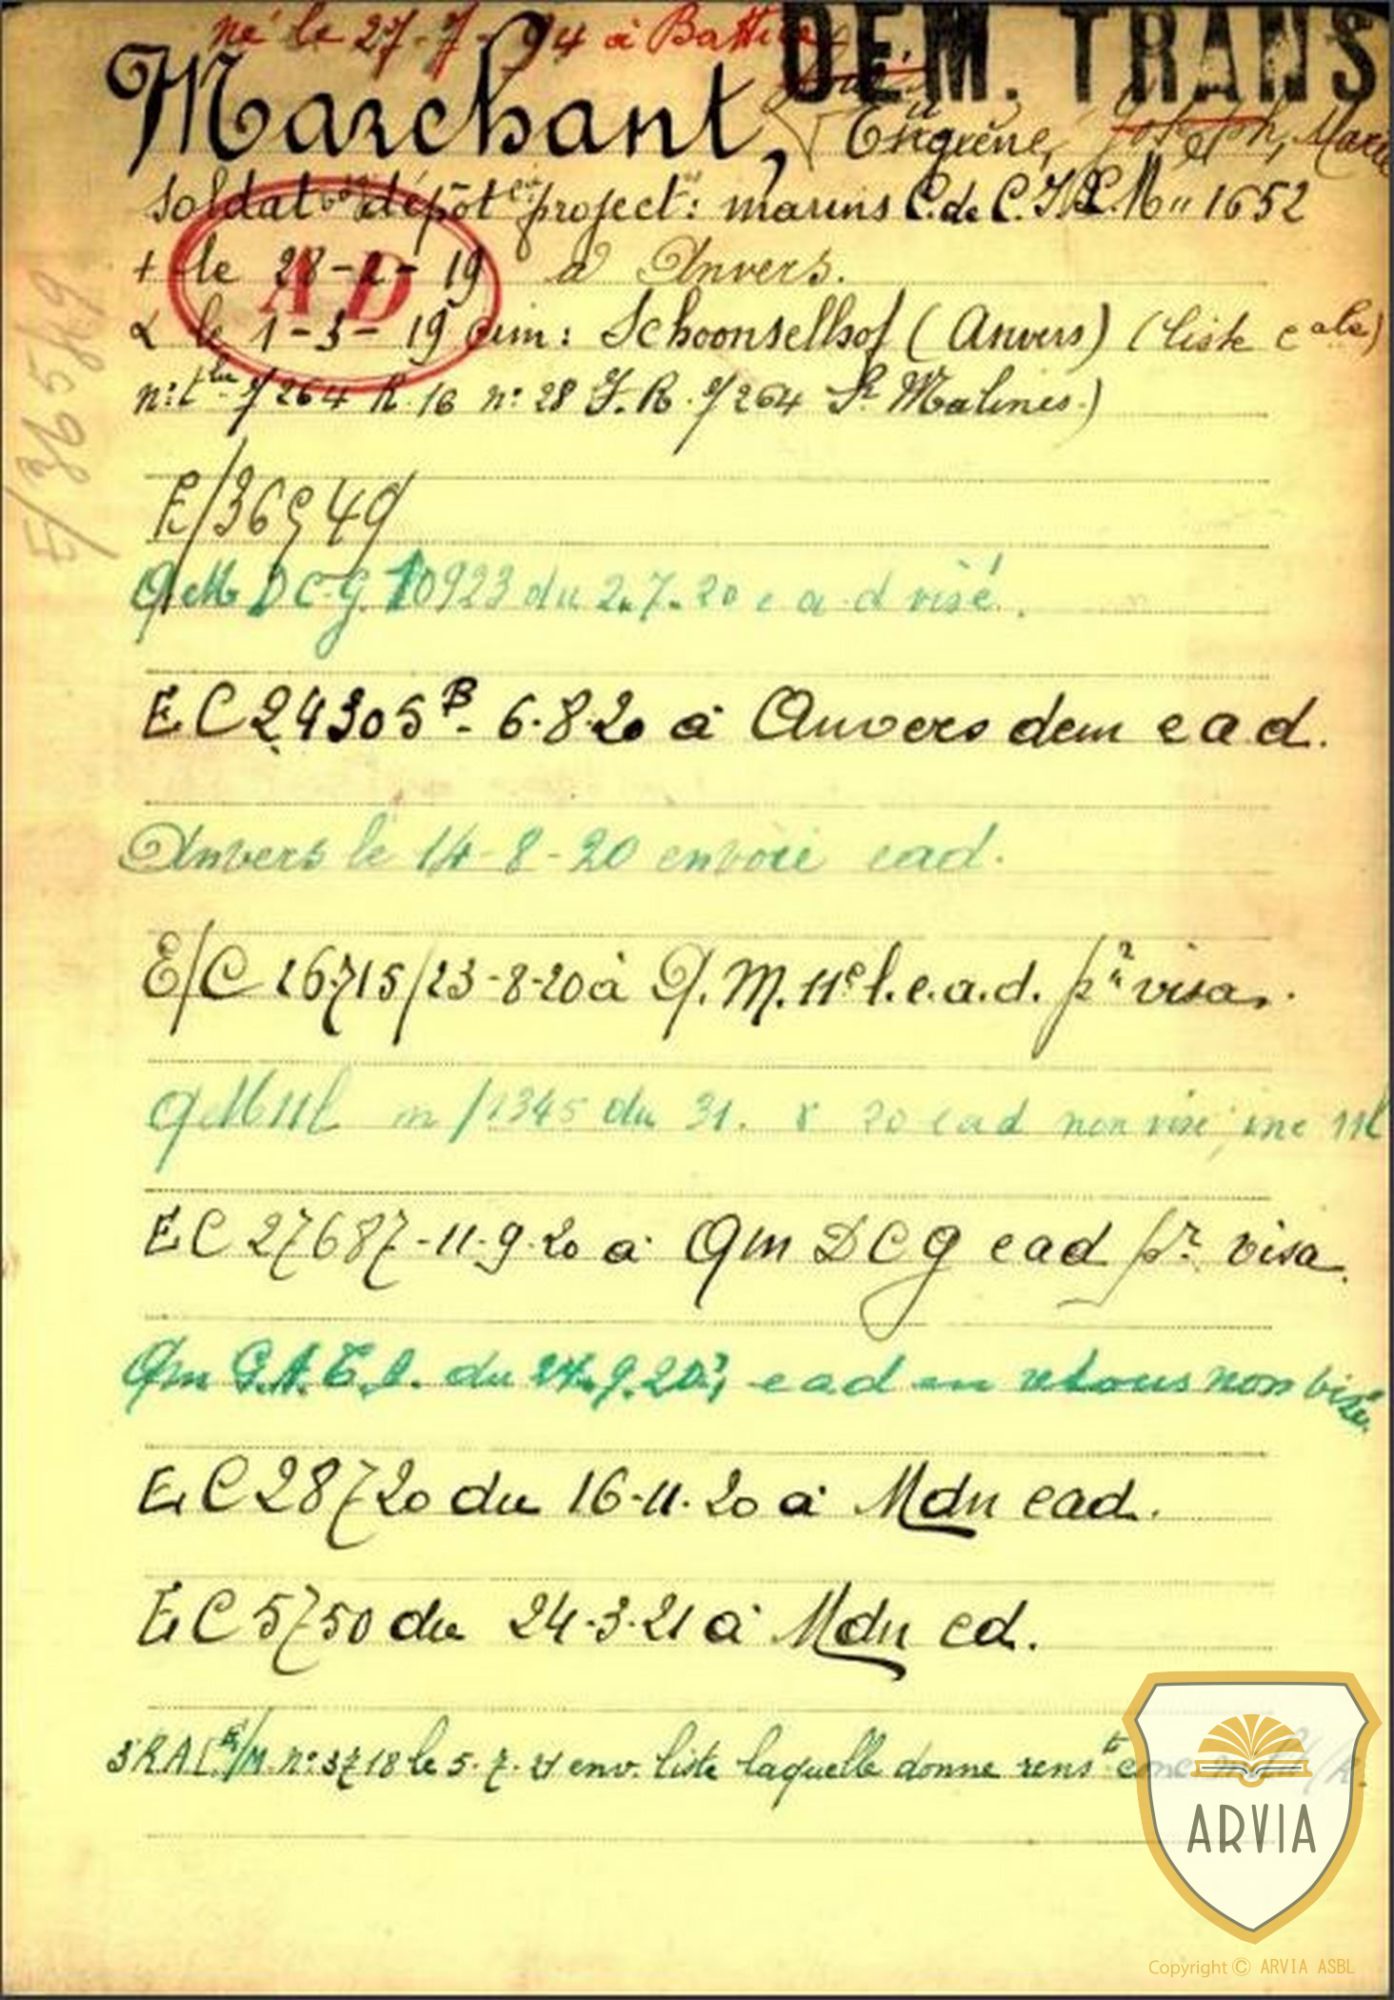 né le 27-7-94 à Battice
DEM. TRANS
Marchant, Eugène, Joseph, Marie
soldat dépôt project: marins C. de C. M" 1652
+ le 28-2-19 à Anvers.
AD
le 1-3-19 cim: Schoonselhof (Anvers) (liste e ale)
n: t 9/264 R. 16 n° 28 J. R. 9/264 Malines.)
E/36549
E/36549
QM DCG 10923 du 2.7.20 e a d visé.
EC 24305 B - 6.8.20 à Anvers dem e a d.
Anvers le 14-8-20 envoie ead.
E/C 26715/23-8-20 à Q. M. 11e l. e.a.d. pr visa.
QM 11l m/1345 du 31. 8 20 ead non visé, inc 11l
EC 27687-11.9.20 à Qm DCG ead pr visa.
Qm G.A.E.A. du 24.9.20, ead en retour non visé.
EC 28720 du 16-11.20 à Mdn ead.
EC 5750 du 24-3-21 à Mdn ed.
3 RA L E/M. n° 3718 le 5.7.21 env. liste laquelle donne renst conc
ARVIA
Copyright © ARVIA ASBL